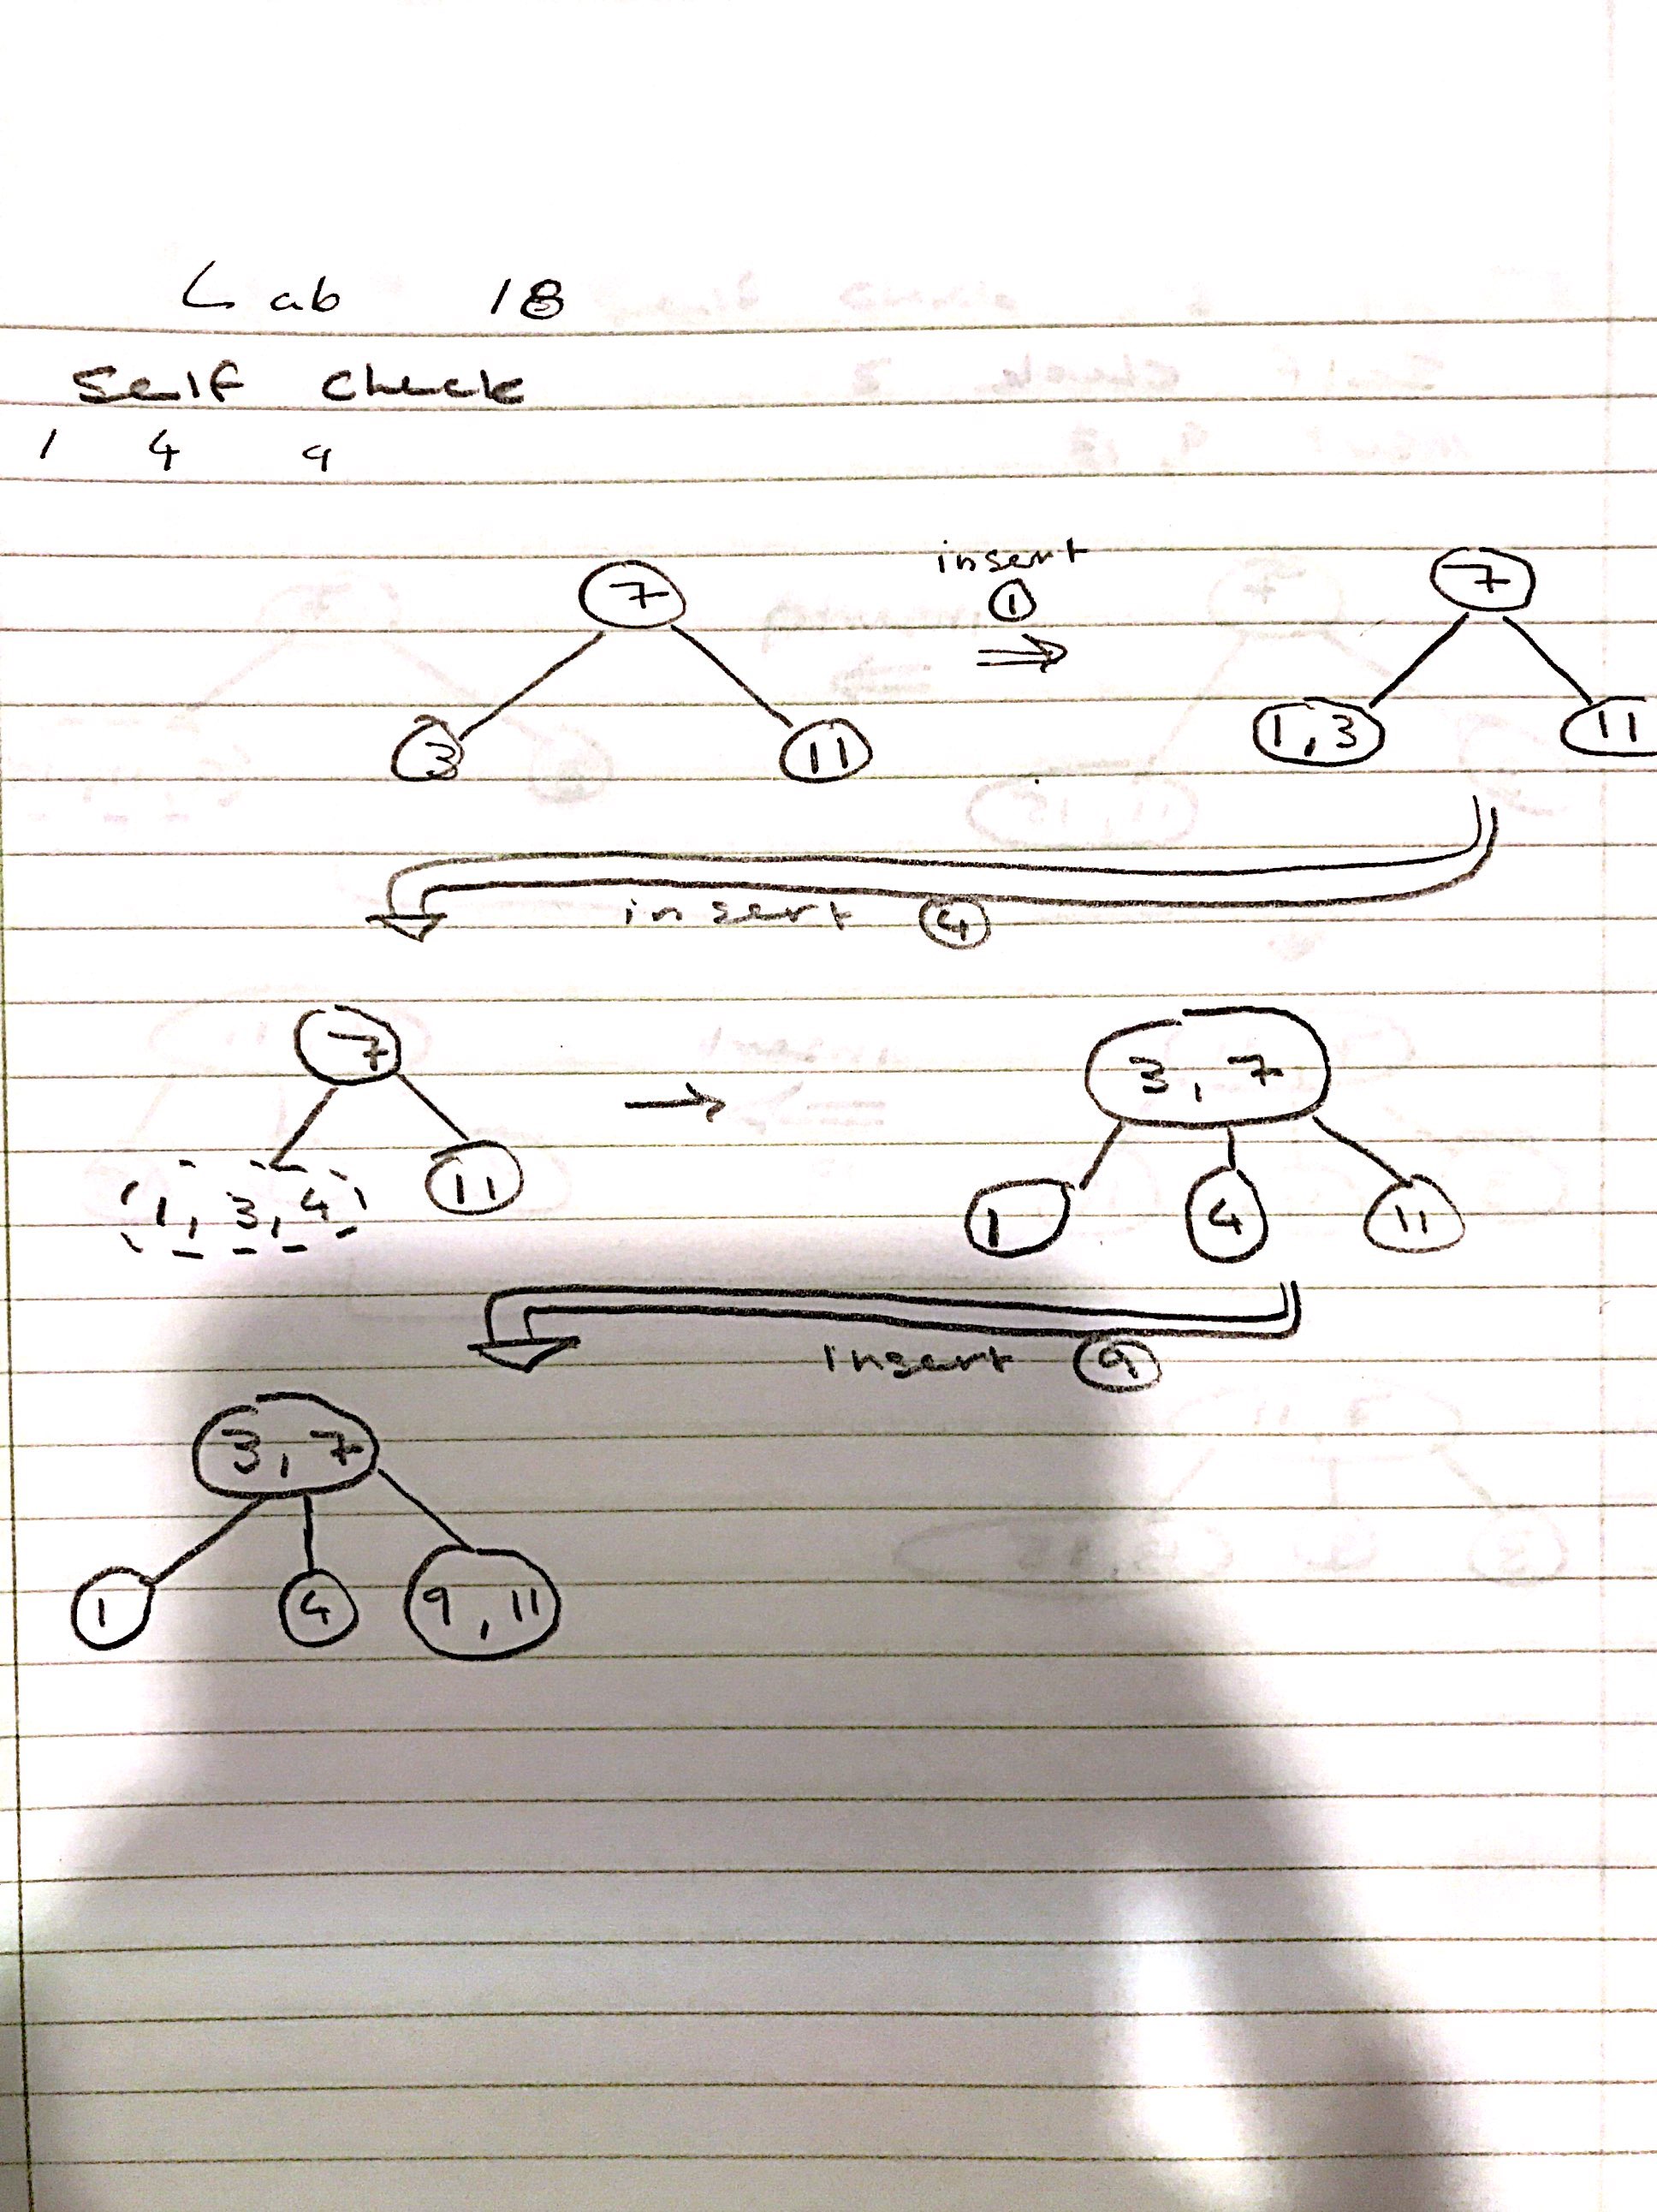 Lab 18
Self Check
1 4 9
insert
7 1 7
3 11 1,3 11
insert 4
7 3,7
1,3,4 11 1 4 11
insert 9
3,7
1 4 9,11